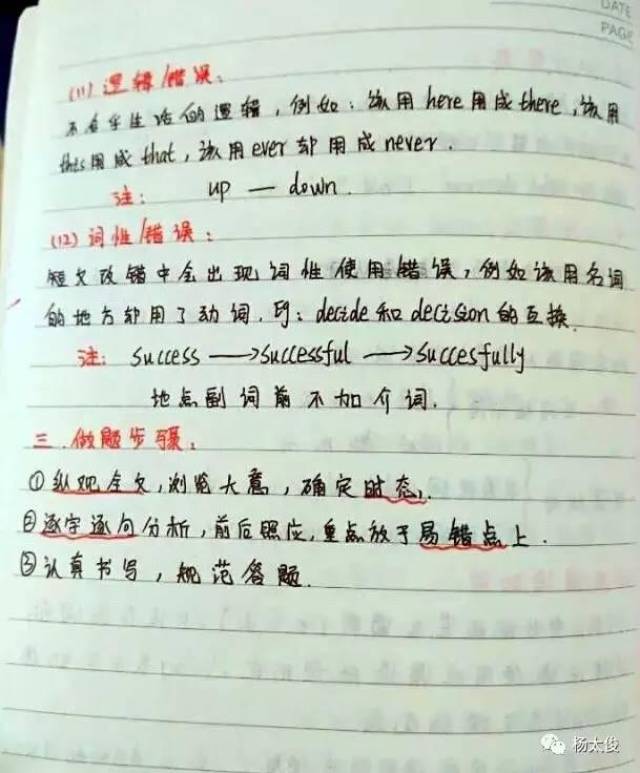 DATE
PAGE
(11) 逻辑错误:
不看乎生活的逻辑,例如:该用here用成there,该用
this用成that,该用ever却用成never.
注: up — down.
(12) 词性错误:
短文改错中会出现词性使用错误,例如该用名词
的地方却用了动词.即:decide和decision的互换.
注: Success —→successful —→Succesfully
地点副词前不加介词.
三.做题步骤:
①纵观全文,浏览大意,确定时态,.
②逐字逐句分析,前后照应,重点放于易错点上.
③认真书写,规范答题.
杨太俊